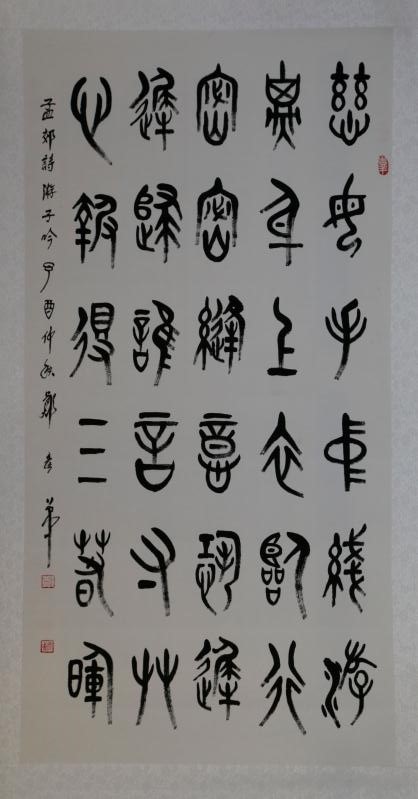 慈母手中綫游
子身上衣臨行
密密縫意恐遲
遲歸誰言寸草
心報得三春暉
孟郊詩游子吟丁酉仲秋鄭華